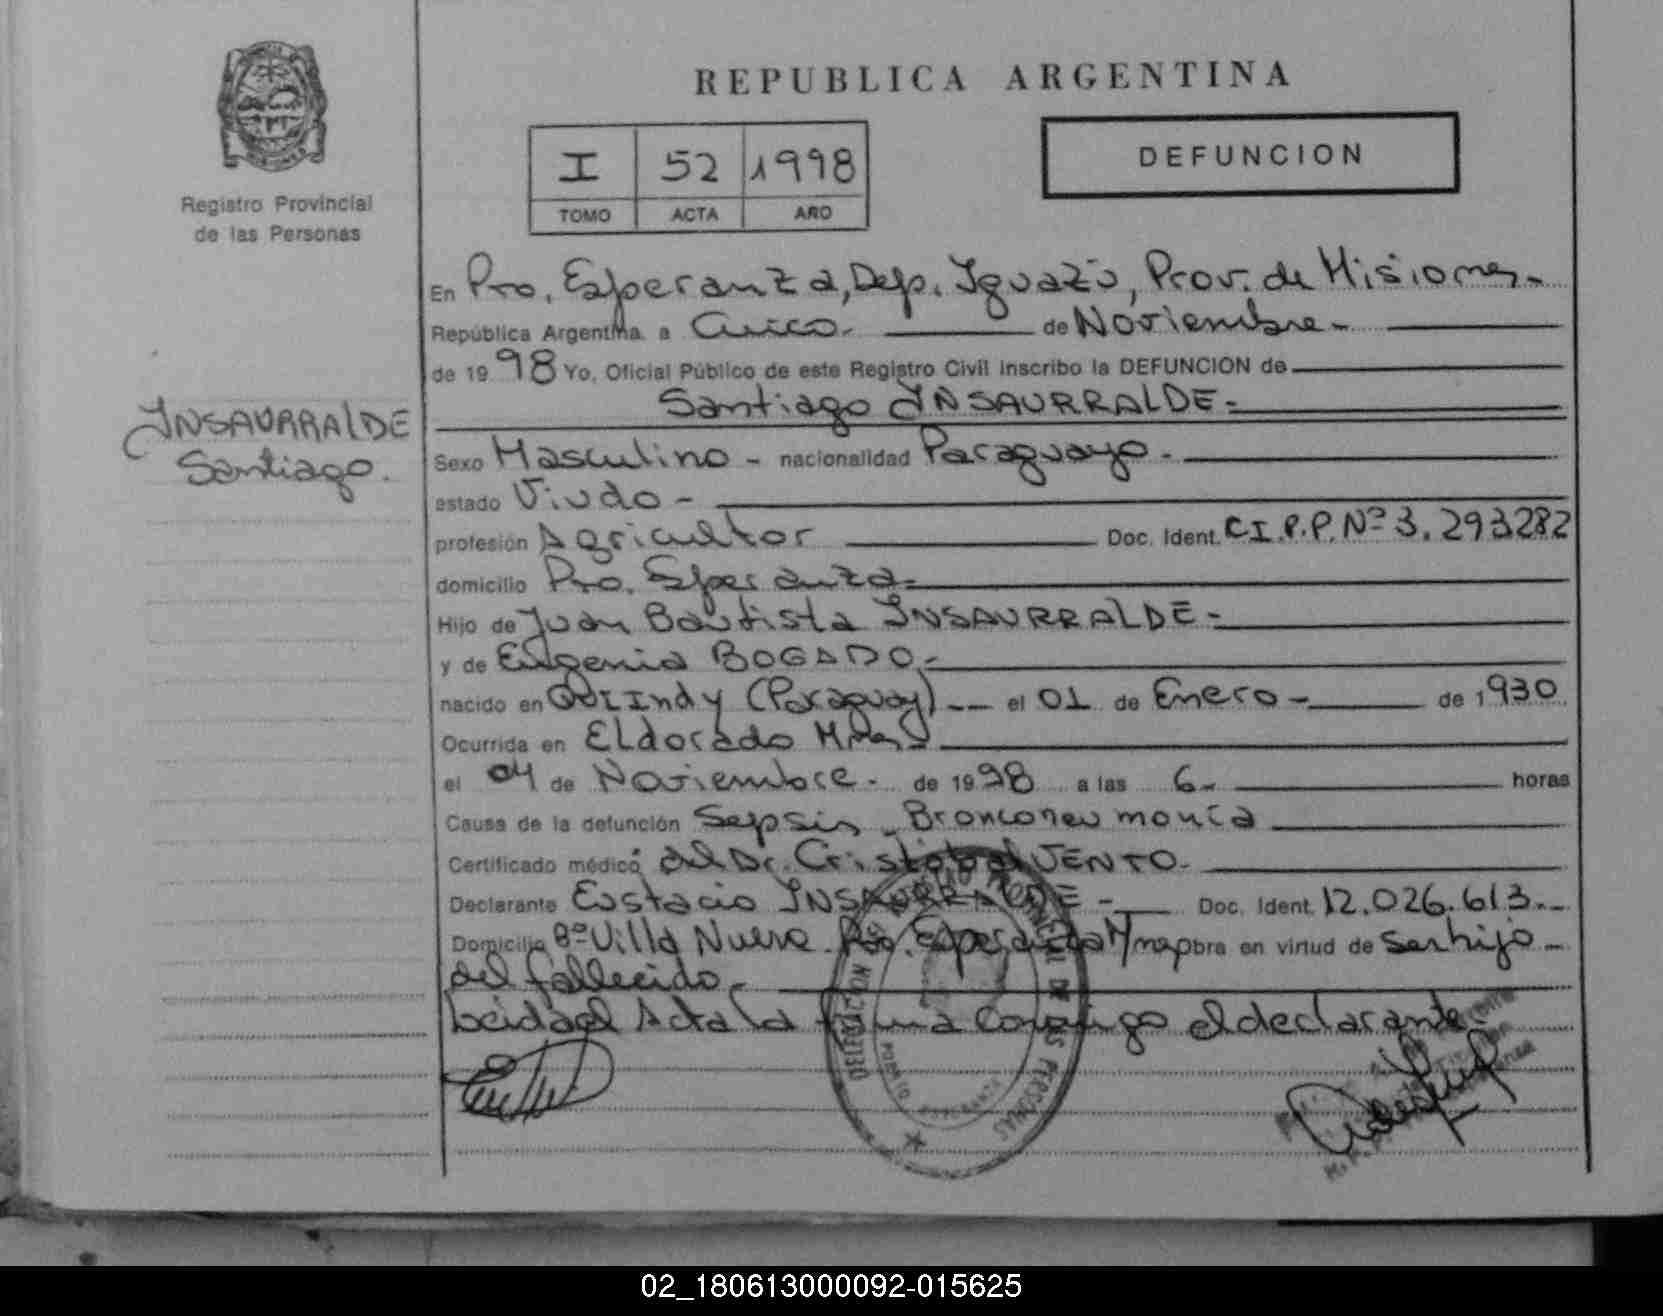 REPUBLICA ARGENTINA
I 52 1998
TOMO ACTA AÑO
DEFUNCION
Registro Provincial
de las Personas
INSAURRALDE
Santiago.
En Pto. Esperanza, Dep. Iguazú, Prov. de Misiones.-
República Argentina, a Cinco.- de Noviembre.-
de 1998 Yo, Oficial Público de este Registro Civil inscribo la DEFUNCION de
Santiago INSAURRALDE.-
Sexo Masculino - nacionalidad Paraguayo.-
estado Viudo -
profesión Agricultor Doc. Ident. C.I.P.P. Nº 3.293282
domicilio Pto. Esperanza.-
Hijo de Juan Bautista INSAURRALDE.-
y de Eugenia BOGADO.-
nacido en QUIIndy (Paraguay) -- el 01 de Enero - de 1930
Ocurrida en ELdorado Mnes
el 04 de Noviembre.- de 1998 a las 6.- horas
Causa de la defunción Sepsis - Bronconeumonía
Certificado médico del Dr. Cristobal VENTO.-
Declarante Eustacio INSAURRALDE - Doc. Ident. 12.026.613.--
Domicilio Bº Villa Nueva. Pto. Esperanza Mnes obra en virtud de ser hijo --
del fallecido.-
Leida el Acta la firma Conmigo el declarante.-
DELEGACION PROVINCIAL DE LAS PERSONAS
PUERTO ESPERANZA
02_180613000092-015625